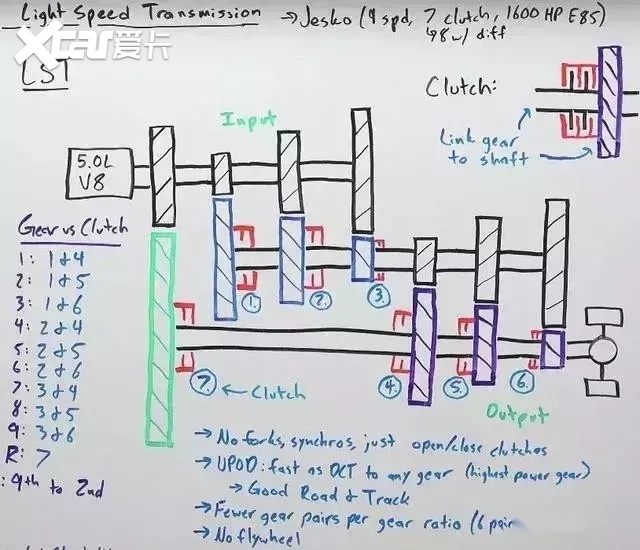 Light Speed Transmission → Jesko (9 spd, 7 clutch, 1600 HP E85)
98 w/ diff
Xcar爱卡
LST
Clutch:
Input
Link gear
to shaft
5.0L
V8
Gear vs Clutch
1: 1&4
2: 1&5
3: 1&6
4: 2&4
5: 2&5
6: 2&6
7: 3&4
8: 3&5
9: 3&6
R: 7
: 9th to 2nd
1.
2.
3.
7.
← Clutch
4.
5.
6.
Output
→ No forks, synchros, just open/close clutches
→ UPOD: fast as DCT to any gear (highest power gear)
→ Good Road & Track
→ Fewer gear pairs per gear ratio (6 pair
→ No flywheel